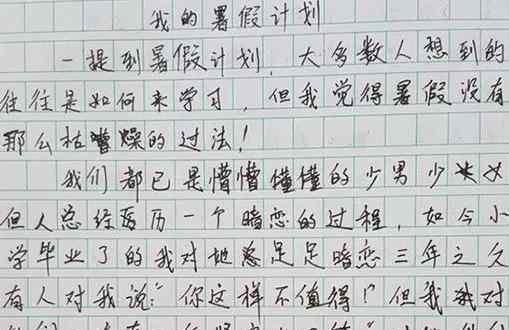 我的暑假计划
一提到暑假计划，大多数人想到的
往往是如何来学习，但我觉得暑假没有
那么枯燥的过法！
我们都已是懵懵懂懂的少男少女
但人总经历一个暗恋的过程，如今小
学毕业了的我对她总足足暗恋三年之久
有人对我说：“你这样不值得！”但我对